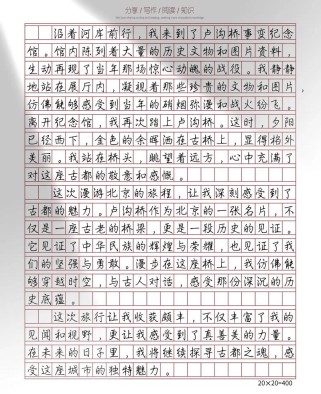 分享/写作/阅读/知识
沿着河岸前行，我来到了卢沟桥事变纪念
馆。馆内陈列着大量的历史文物和图片资料，
生动再现了当年那场惊心动魄的战役。我静静
地站在展厅内，凝视着那些珍贵的文物和图片
仿佛能够感受到当年的硝烟弥漫和战火纷飞。
离开纪念馆，我再次踏上卢沟桥。这时，夕阳
已经西下，金色的余晖洒在古桥上，显得格外
美丽。我站在桥头，眺望着远方，心中充满了
对这座古都的敬意和感慨。
这次漫游北京的旅程，让我深刻感受到了
古都的魅力。卢沟桥作为北京的一张名片，不
仅是一座古老的桥梁，更是一段历史的见证。
它见证了中华民族的辉煌与荣耀，也见证了我
们的坚强与勇敢。漫步在这座桥上，我仿佛能
够穿越时空，与古人对话，感受那份深沉的历
史底蕴。
这次旅行让我收获颇丰，不仅丰富了我的
见闻和视野，更让我感受到了真善美的力量。
在未来的日子里，我将继续探寻古都之魂，感
受这座城市的独特魅力。
20×20=400